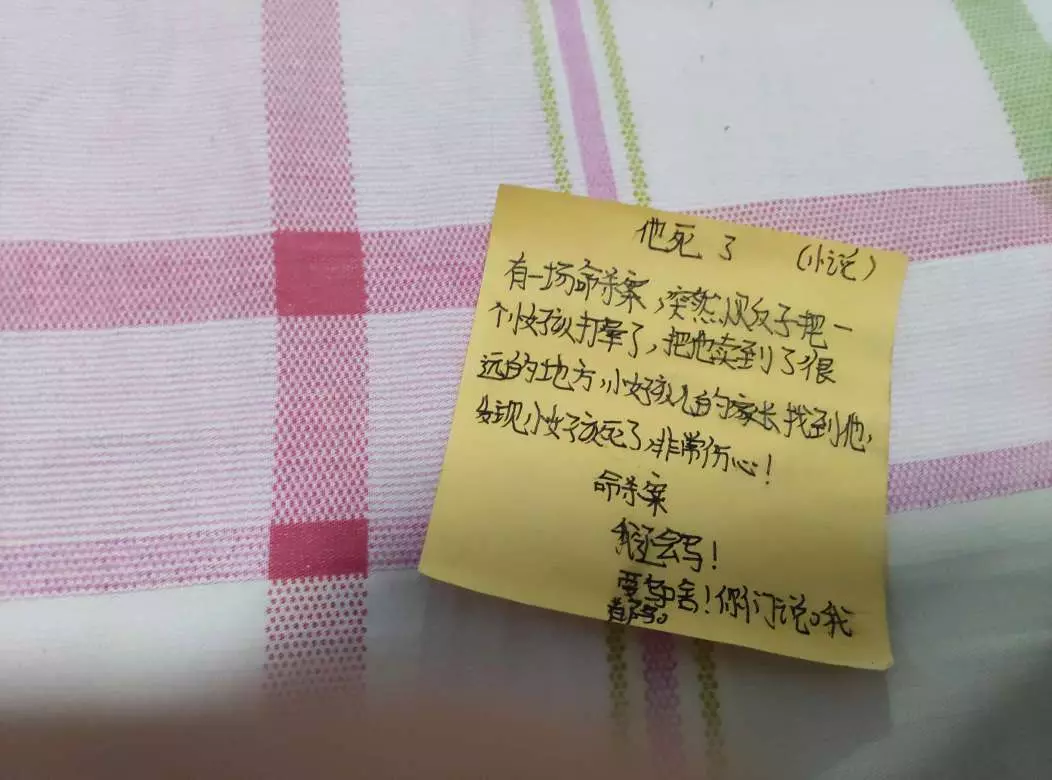 他死了 (小说)
有一场命杀案,突然,人反子把一
个小女孩打晕了,把他卖到了很
远的地方,小女孩儿的家长找到他,
发现小女子亥死了,非常伤心!
命杀案
我还会写!
要写啥!你们说。我
都写。